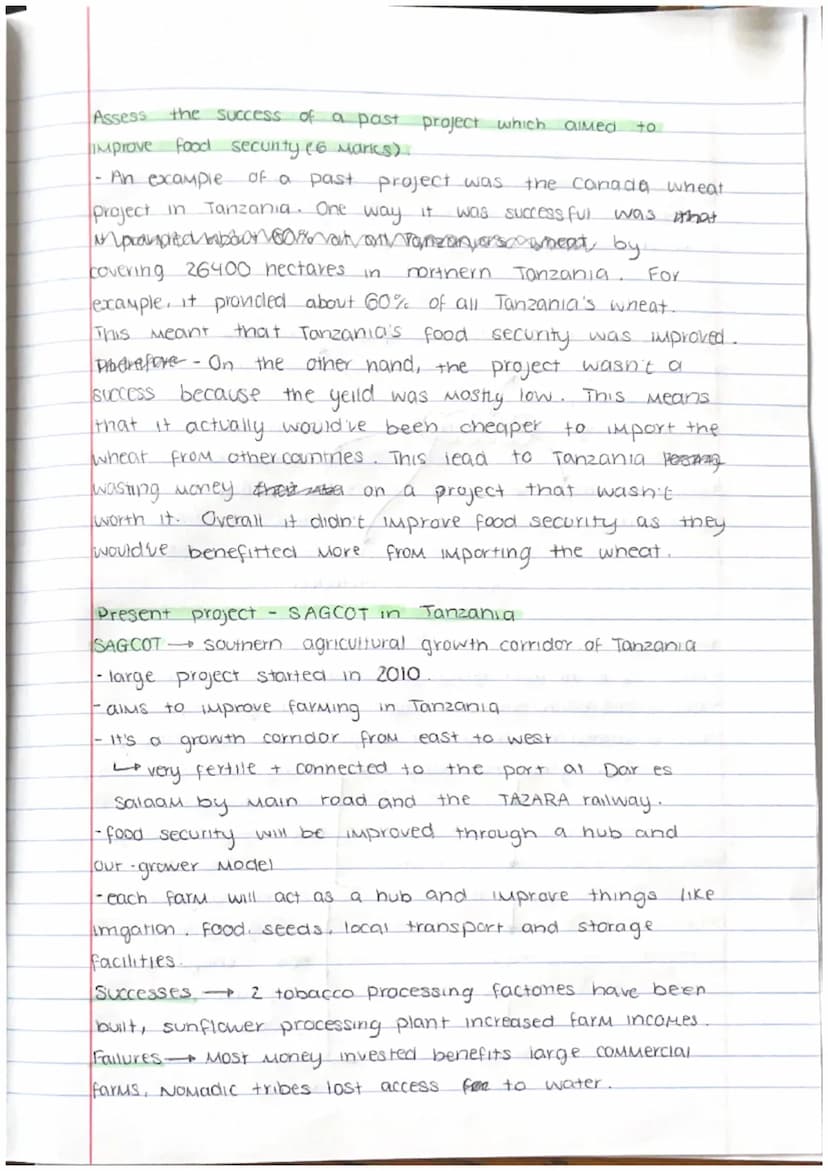 Assess the success of a past project which aimed to
improve food security (6 marks)
- An example of a past project was the Canada wheat
project in Tanzania. One way it was successful was that
by
covering 26400 hectares in northern Tanzania. For
example, it provided about 60% of all Tanzania's wheat.
This meant that Tanzania's food security was improved.
- On the other hand, the project wasn't a
success because the yeild was mostly low. This means
that it actually would've been cheaper to import the
wheat from other countries. This lead to Tanzania
wasting money on a project that wasn't
worth it. Overall it didn't improve food security as they
would've benefitted more from importing the wheat.
Present project - SAGCOT in Tanzania
SAGCOT → southern agricultural growth corridor of Tanzania
- large project started in 2010.
- aims to improve farming in Tanzania
- It's a growth corridor from east to west
↳ very fertile + connected to the port at Dar es
Salaam by main road and the TAZARA railway.
- food security will be improved through a hub and
out-grower model
- each farm will act as a hub and improve things like
irrigation, food, seeds, local transport and storage
facilities.
Successes → 2 tobacco processing factories have been
built, sunflower processing plant increased farm incomes.
Failures → Most money invested benefits large commercial
farms, Nomadic tribes lost access to water.